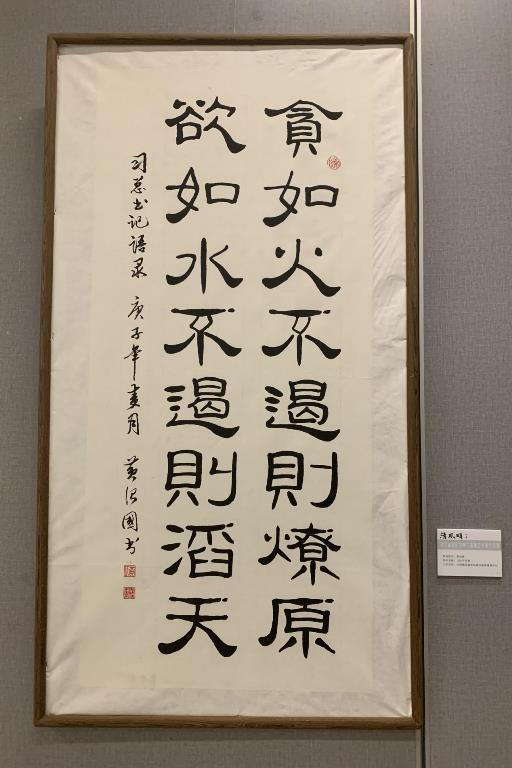 貪如火不遏則燎原
欲如水不遏則滔天
习总书记语录 庚子年夏月 黄治國书
清风颂